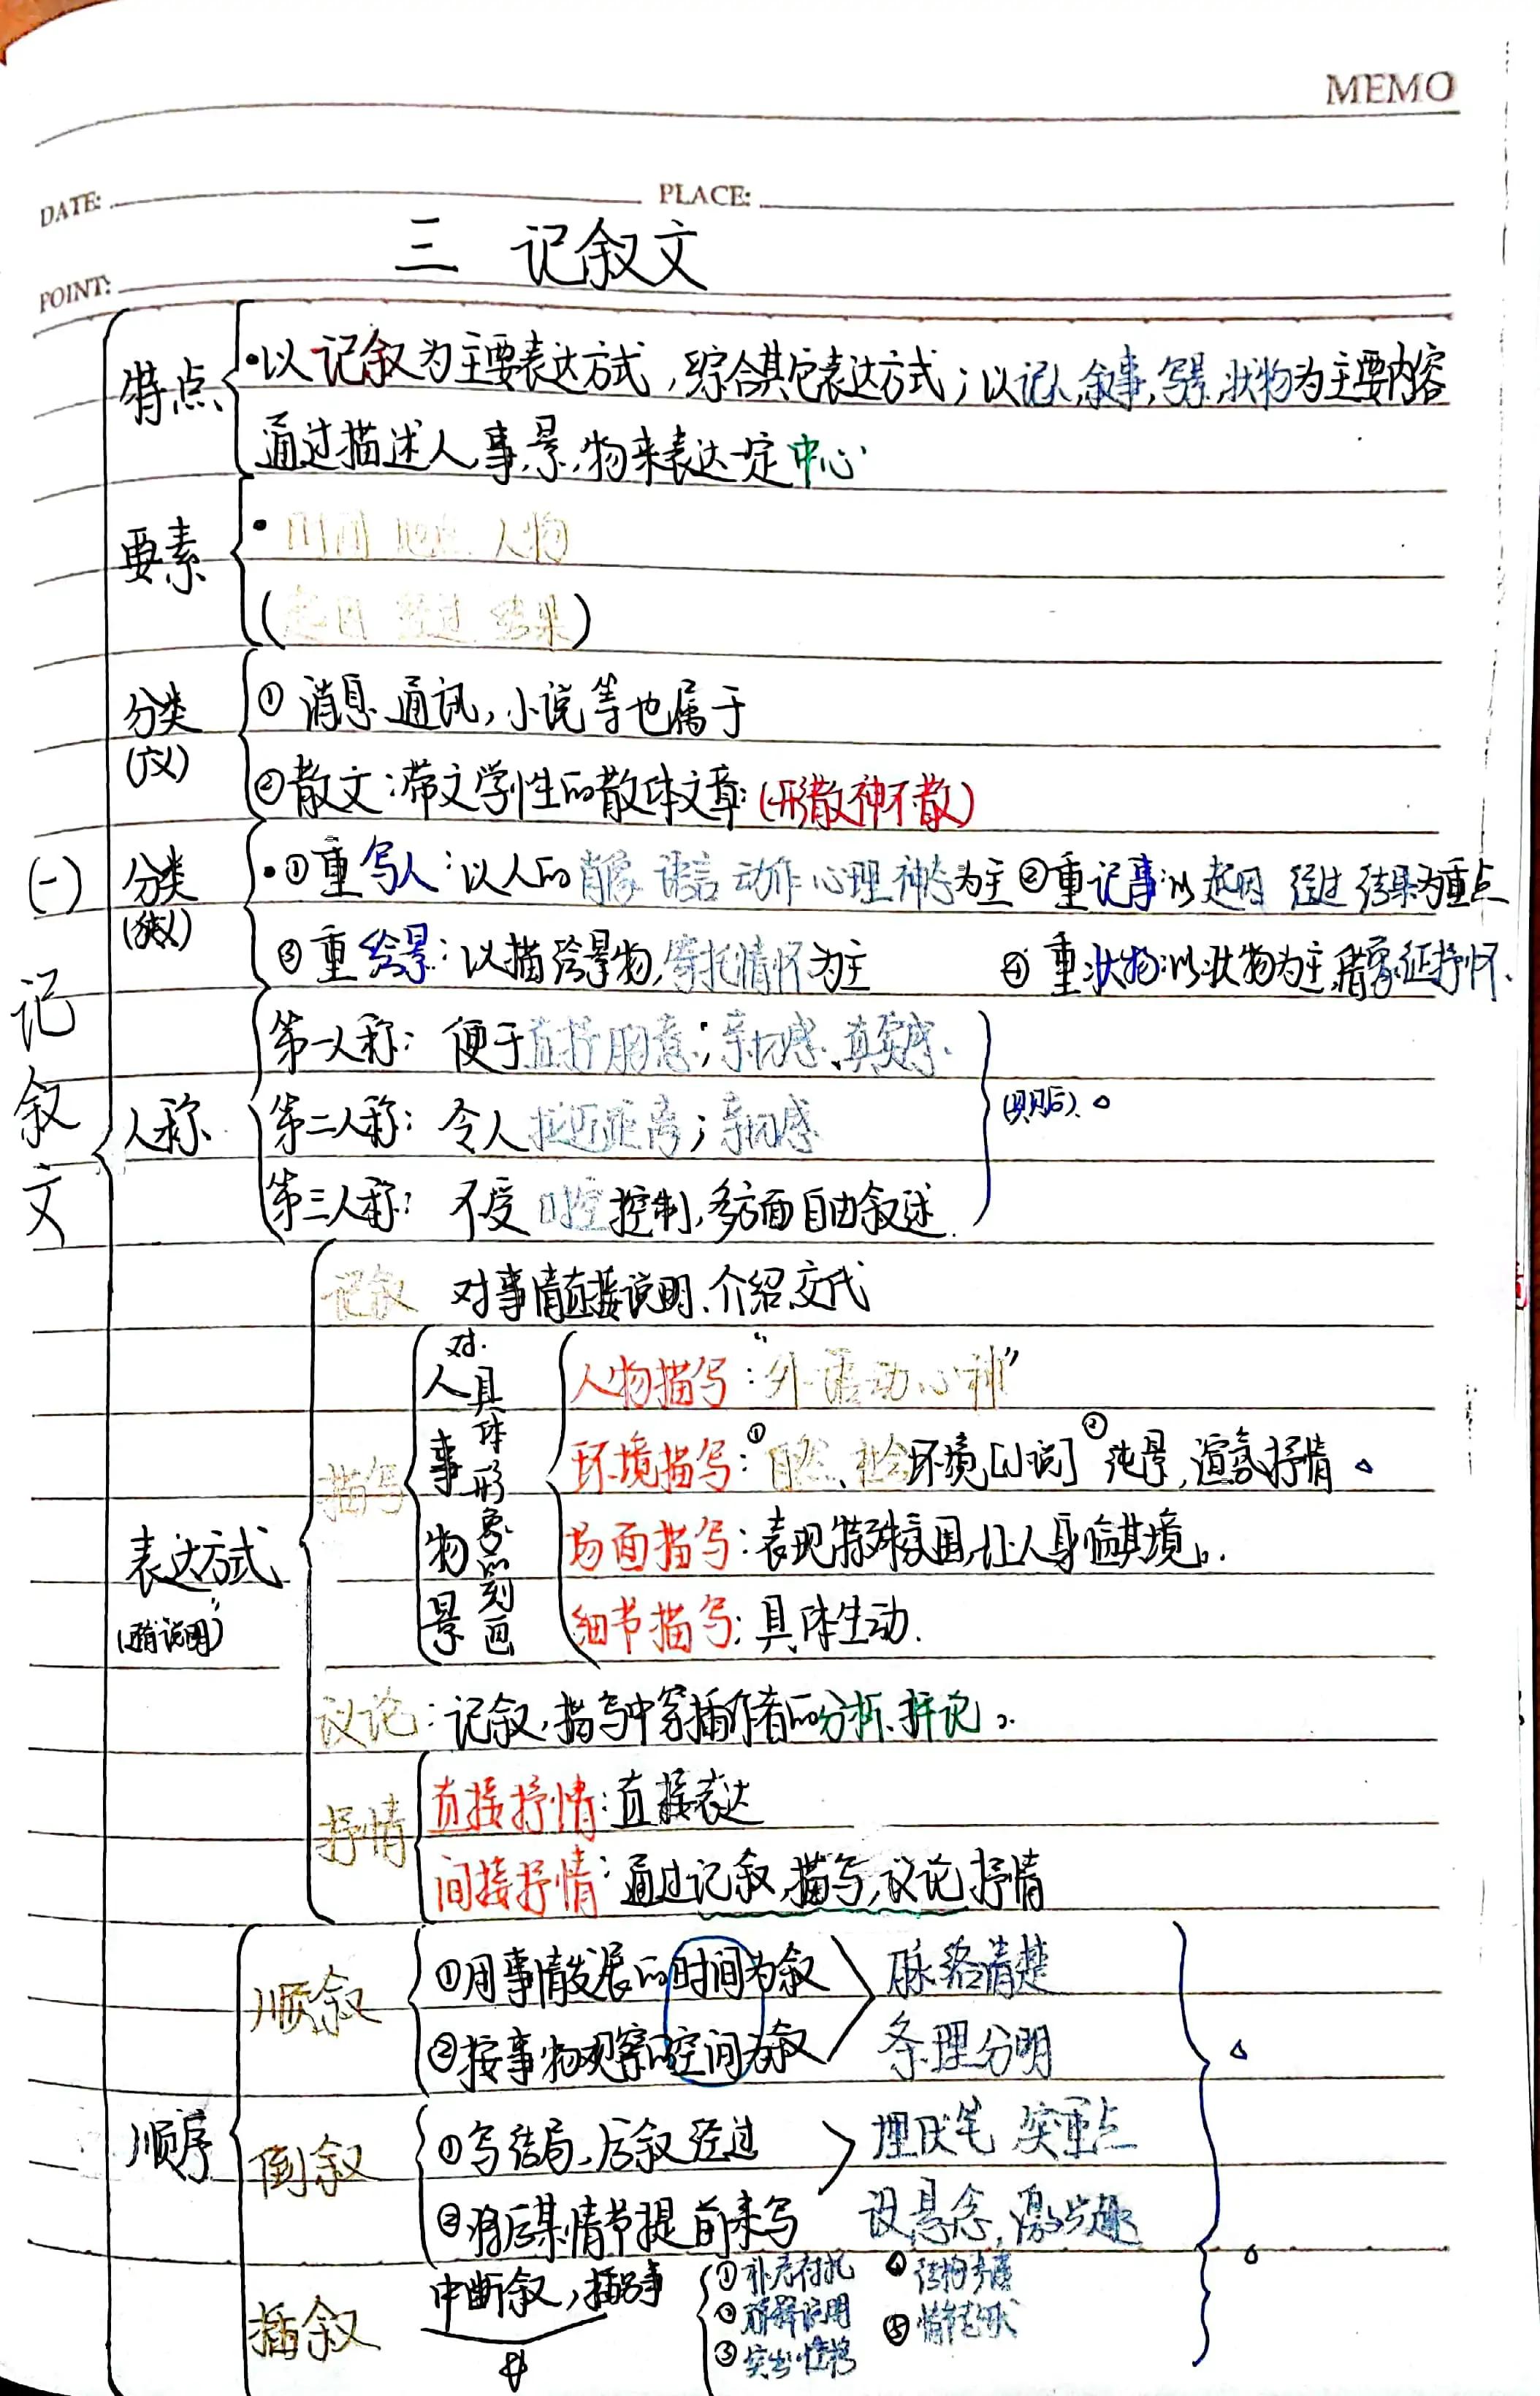 MEMO
DATE: PLACE:
三 记叙文
POINT:
(一) 记叙文
特点
·以记叙为主要表达方式,综合其它表达方式;以记人,叙事,写景,状物为主要内容
通过描述人,事,景,物来表达一定中心
要素
·时间 地点 人物
(起因 经过 结果)
分类
(广义)
① 消息 通讯,小说等也属于
②散文:带文学性的散体文章(形散神不散)
分类
(狭义)
·①重写人:以人的肖像 语言 动作 心理 神态为主 ②重记事:以起因 经过 结果为重点
③重绘景:以描绘景物,寄托情怀为主 ④重状物:以状物为主,借象征抒怀.
人称
第一人称: 便于直抒胸意;亲切感、真实感.
第二人称: 令人拉近距离;亲切感
第三人称: 不受时空控制,多方面自由叙述.
表达方式
记叙 对事情直接说明、介绍,交代
描写
对人事物景
具体形象的刻画
人物描写:“外语动心神”
环境描写:①自然、社会环境[小说] ②纯景,渲氛抒情
场面描写:表现特殊氛围,让人身临其境。
细节描写:具体生动.
议论:记叙,描写中穿插作者的分析、评论。
抒情
直接抒情:直接表达
间接抒情:通过记叙,描写,议论抒情
顺序
顺叙
①用事情发展的时间为叙
②按事物观察的空间为叙
脉络清楚
条理分明
倒叙
①写结局,后叙经过
②将后某情节提前来写
埋伏笔 突重点
设悬念,激兴趣
插叙
中断叙,插别事
①补充衬托
②解释说明
③突出性格